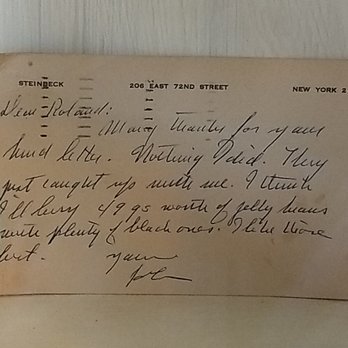 STEINBECK 206 EAST 72ND STREET NEW YORK 2
Dear Roland:
Many thanks for your
kind letter. Nothing I did. They
just caught up with me. I think
I'll buy 49.95 worth of jelly beans
with plenty of black ones. I like those
best.
yours